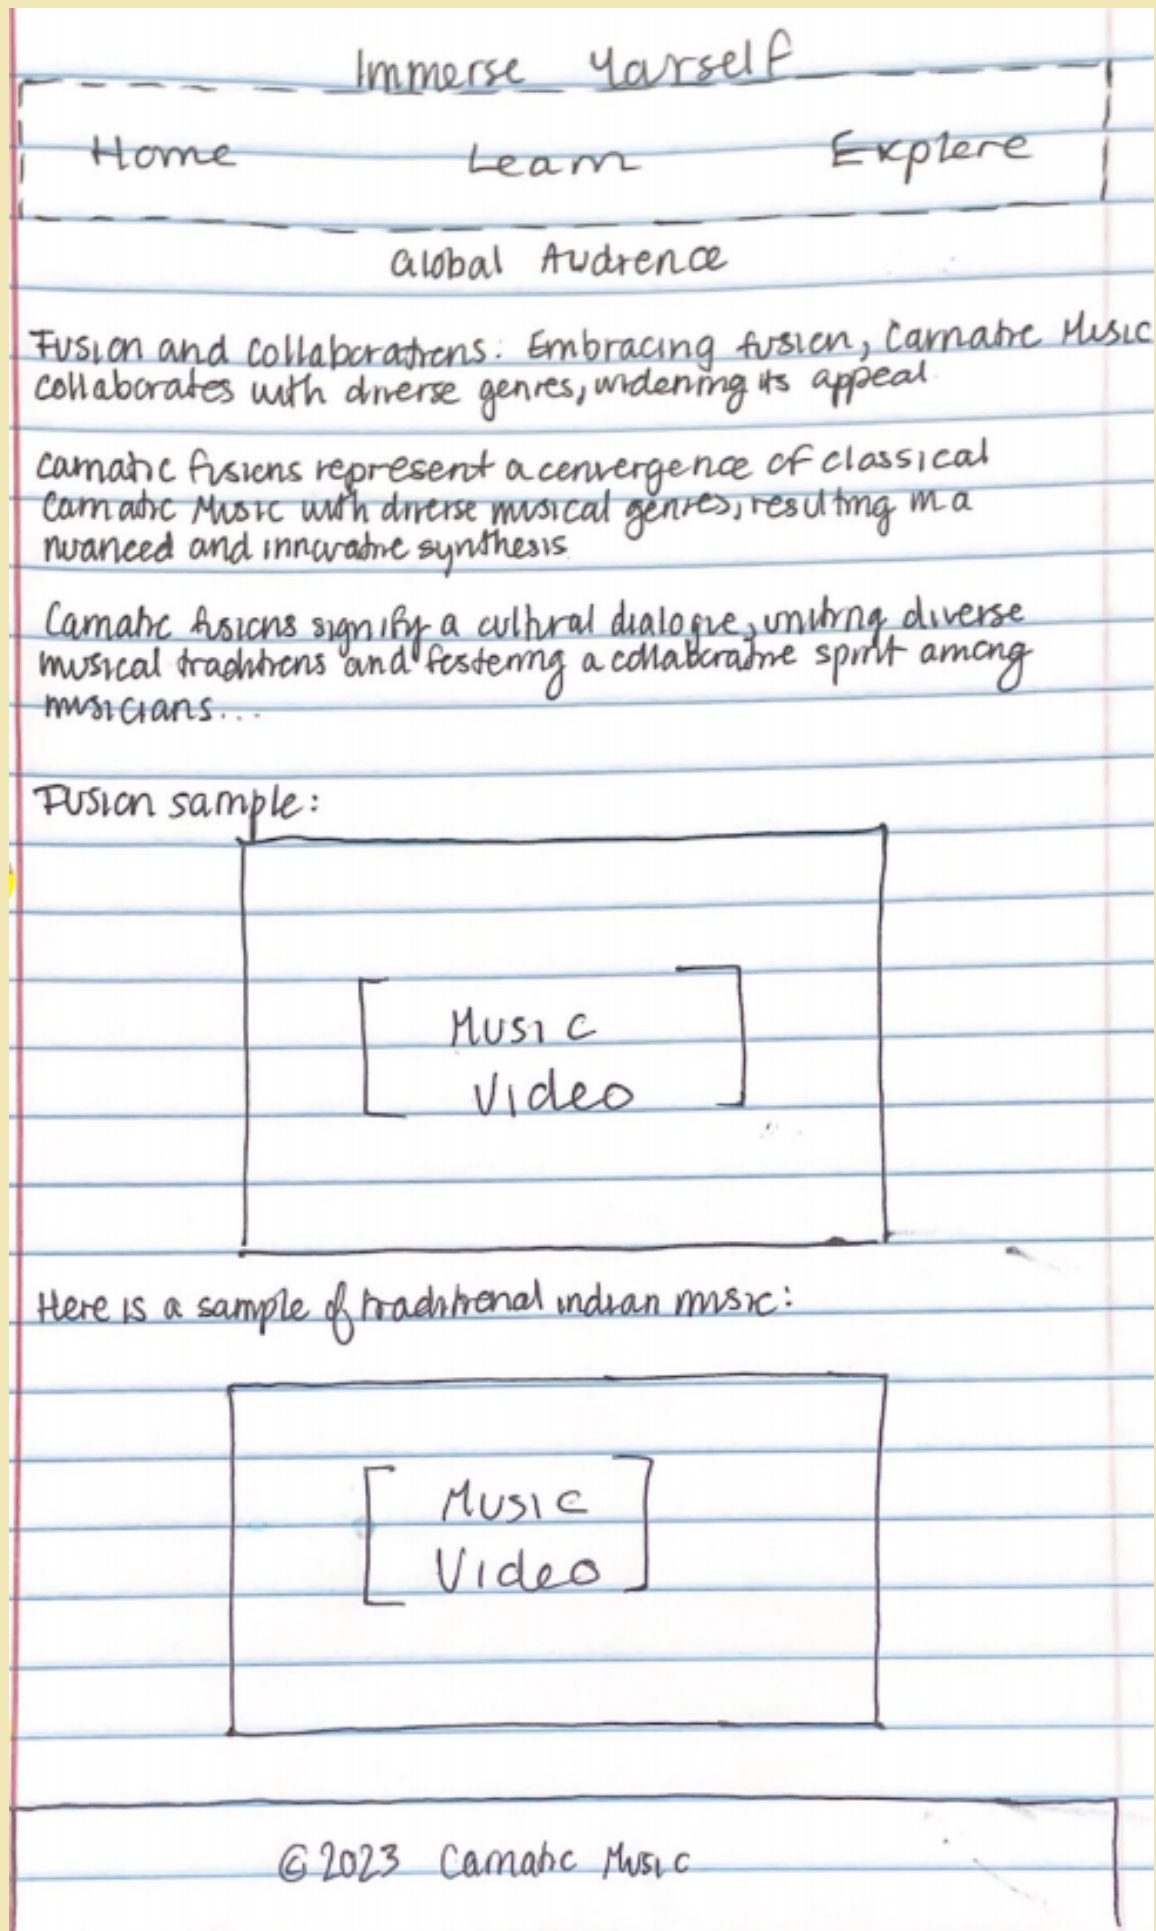 Immerse Yourself
Home Learn Explore
Global Audience
Fusion and Collaborations: Embracing fusion, Carnatic Music
collaborates with diverse genres, widening its appeal.
Carnatic fusions represent a convergence of classical
Carnatic Music with diverse musical genres, resulting in a
nuanced and innovative synthesis.
Carnatic fusions signify a cultural dialogue, uniting diverse
musical traditions and fostering a collaborative spirit among
musicians...
Fusion sample:
Music
Video
Here is a sample of traditional indian music:
Music
Video
©2023 Carnatic Music